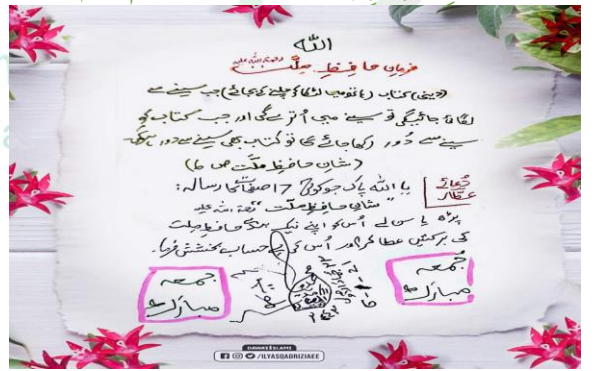 اللہ
فرمانِ حافظِ ملّت رحمۃ اللہ علیہ
(دینی) کتاب (ہاتھ میں لٹکا کر چلنے کی بجائے) جب سینے سے
لگائی جائیگی تو سینے میں اُترے گی اور جب کتاب کو
سینے سے دُور رکھا جائے گا تو کتاب بھی سینے سے دور ہوگی
(شانِ حافظِ ملّت ص 6)
دُعائے عطّار
یا اللہ پاک جو کوئی 17 صفحات کا رسالہ:
"شانِ حافظِ ملّت" رحمۃ اللہ علیہ
پڑھ یا سن لے اُس کو اپنے نیک بندے حافظِ ملت
کی برکتیں عطا کر اور اُس کی بے حساب بخشش فرما۔
جمعہ
مبارک
جُمعہ
مبارک
DAWATEISLAMI
/ILYASQADRIZIAEE